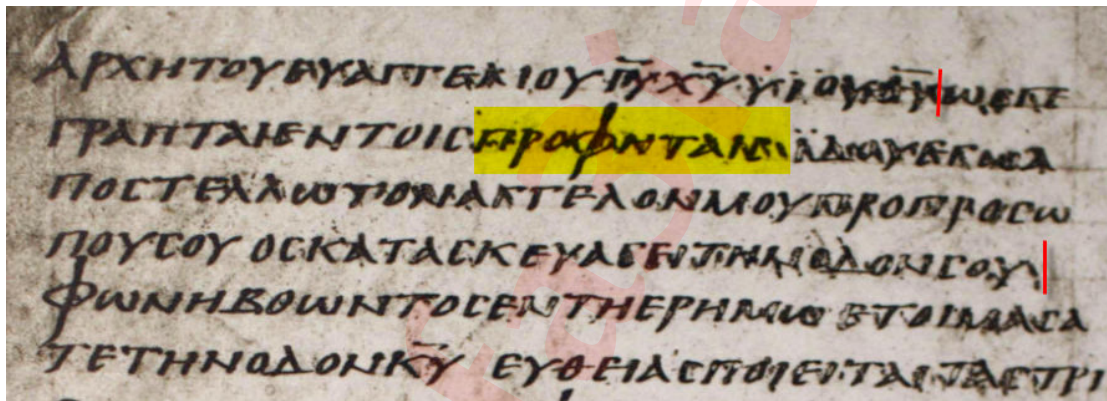 ΑΡΧΗΤΟΥΕΥΑΓΓΕΛΙΟΥΙΥΧΥΥΙΟΥΘΥΩϹΓΕ
ΓΡΑΠΤΑΙΕΝΤΟΙϹΠΡΟΦΗΤΑΙϹΙΔΟΥΕΓΩΑ
ΠΟϹΤΕΛΛΩΤΟΝΑΓΓΕΛΟΝΜΟΥΠΡΟΠΡΟϹΩ
ΠΟΥϹΟΥ ΟϹΚΑΤΑϹΚΕΥΑϹΕΙΤΗΝΟΔΟΝϹΟΥ
ΦΩΝΗΒΟΩΝΤΟϹΕΝΤΗΕΡΗΜΩ ΕΤΟΙΜΑϹΑ
ΤΕΤΗΝΟΔΟΝΚΥ ΕΥΘΕΙΑϹΠΟΙΕΙΤΑΙΤΑϹΤΡΙ